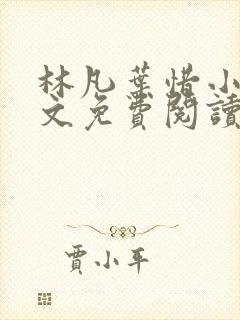 林凡葉惜小
文免費閱讀
賈小平